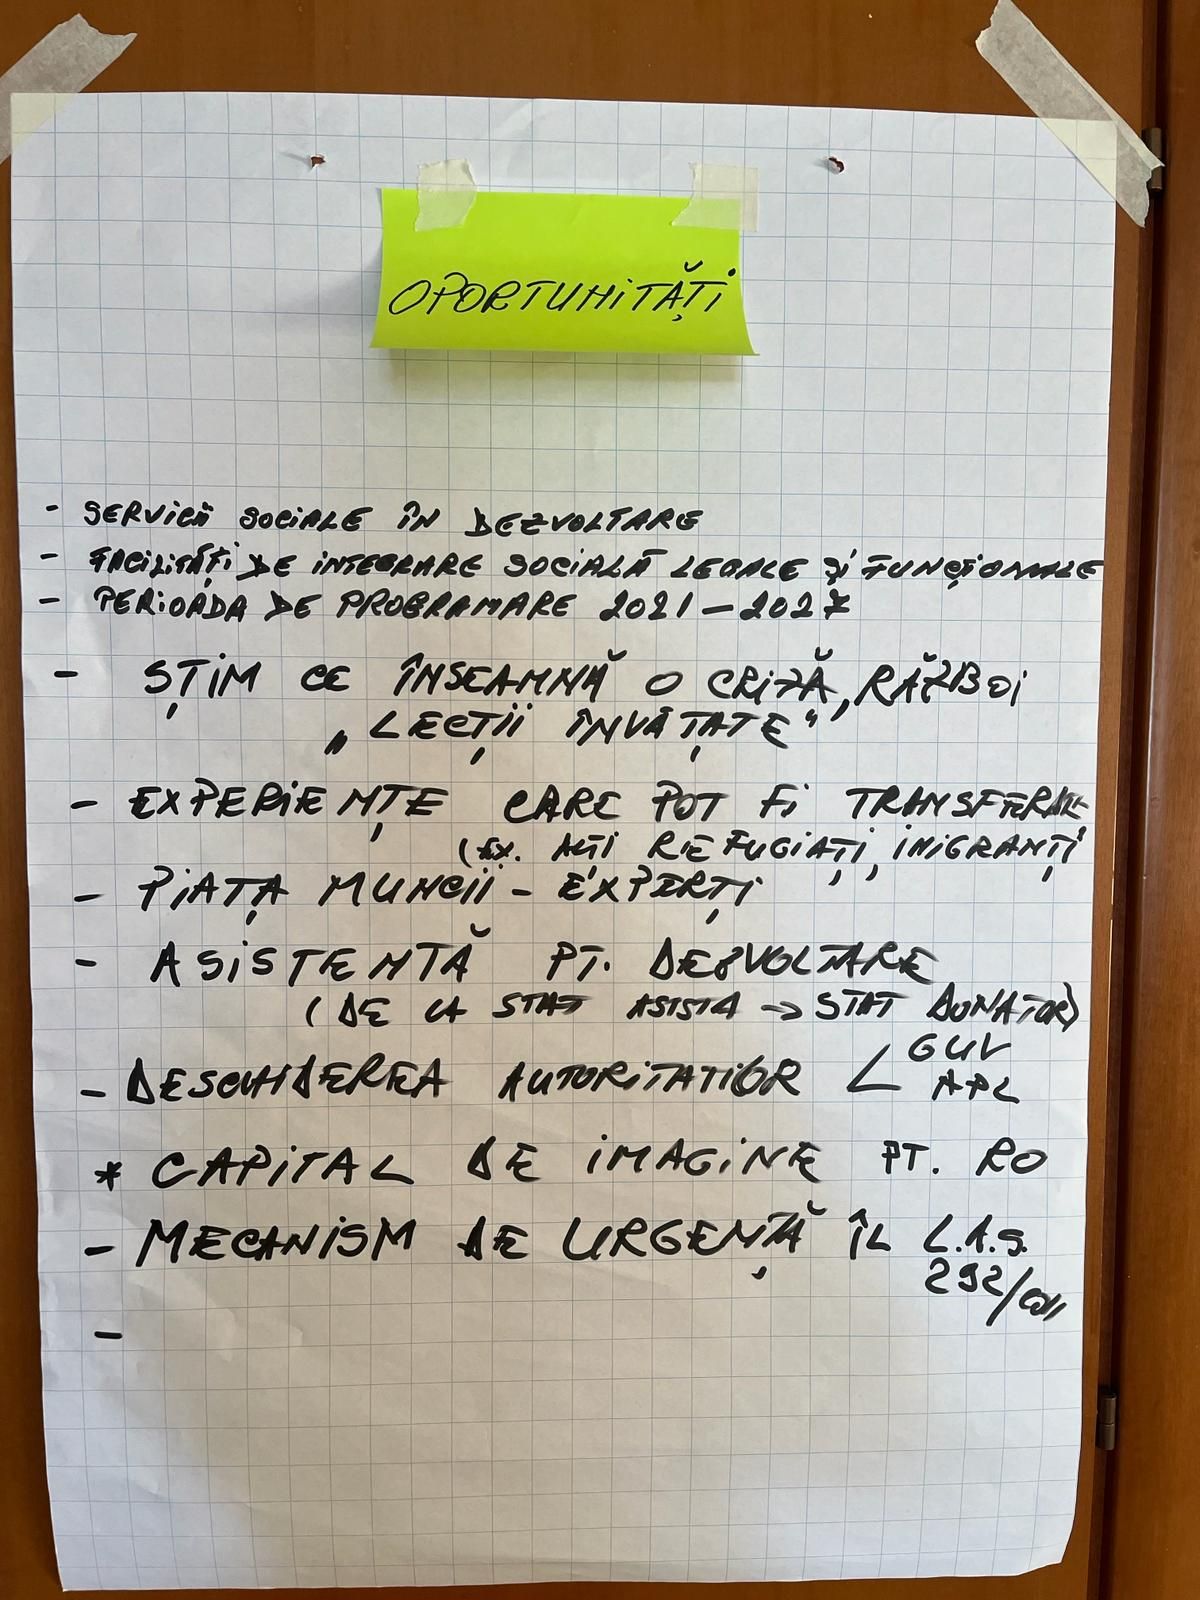 OPORTUNITĂȚI
- SERVICII SOCIALE ÎN DEZVOLTARE
- FACILITĂȚI DE INTEGRARE SOCIALĂ LEGALE ȘI FUNCȚIONALE
- PERIOADA DE PROGRAMARE 2021-2027
- ȘTIM CE ÎNSEAMNĂ O CRIZĂ, RĂZBOI
„LECȚII ÎNVĂȚATE"
- EXPERIENȚE CARE POT FI
(EX. ALȚI REFUGIAȚI, IMIGRANȚI
- PIAȚA MUNCII - EXPERȚI
- ASISTENTĂ PT. DEZVOLTARE
(DE LA STAT ASISTAT → STAT DONATOR)
- DESCHIDEREA AUTORITATILOR < GUV
APL
* CAPITAL DE IMAGINE PT. RO
- MECANISM DE URGENȚĂ ÎL L.A.S.
292/2011
-